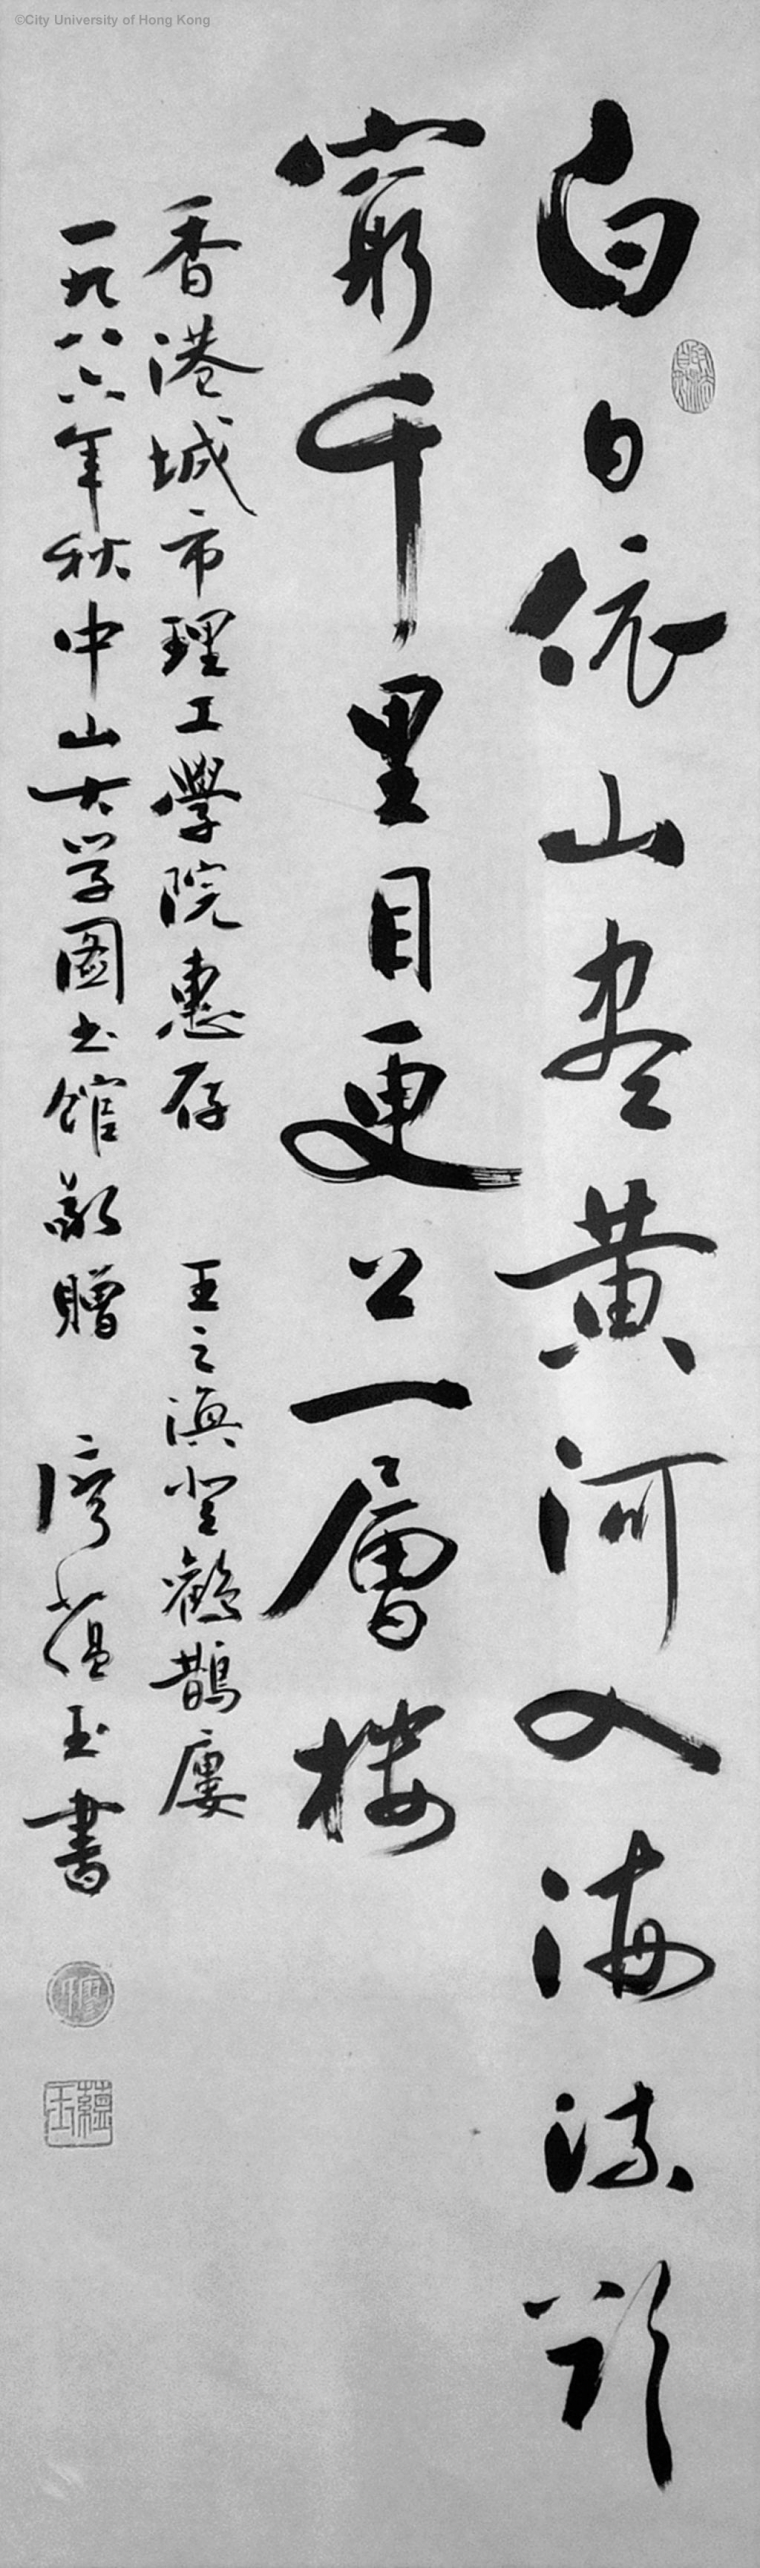 ©City University of Hong Kong
白日依山尽黄河入海流欲
窮千里目更上一層楼
香港城市理工學院惠存 王之渙登鸛鵲廔
一九八六年秋中山大学图书馆敬贈 廖蕴玉書
蘊玉